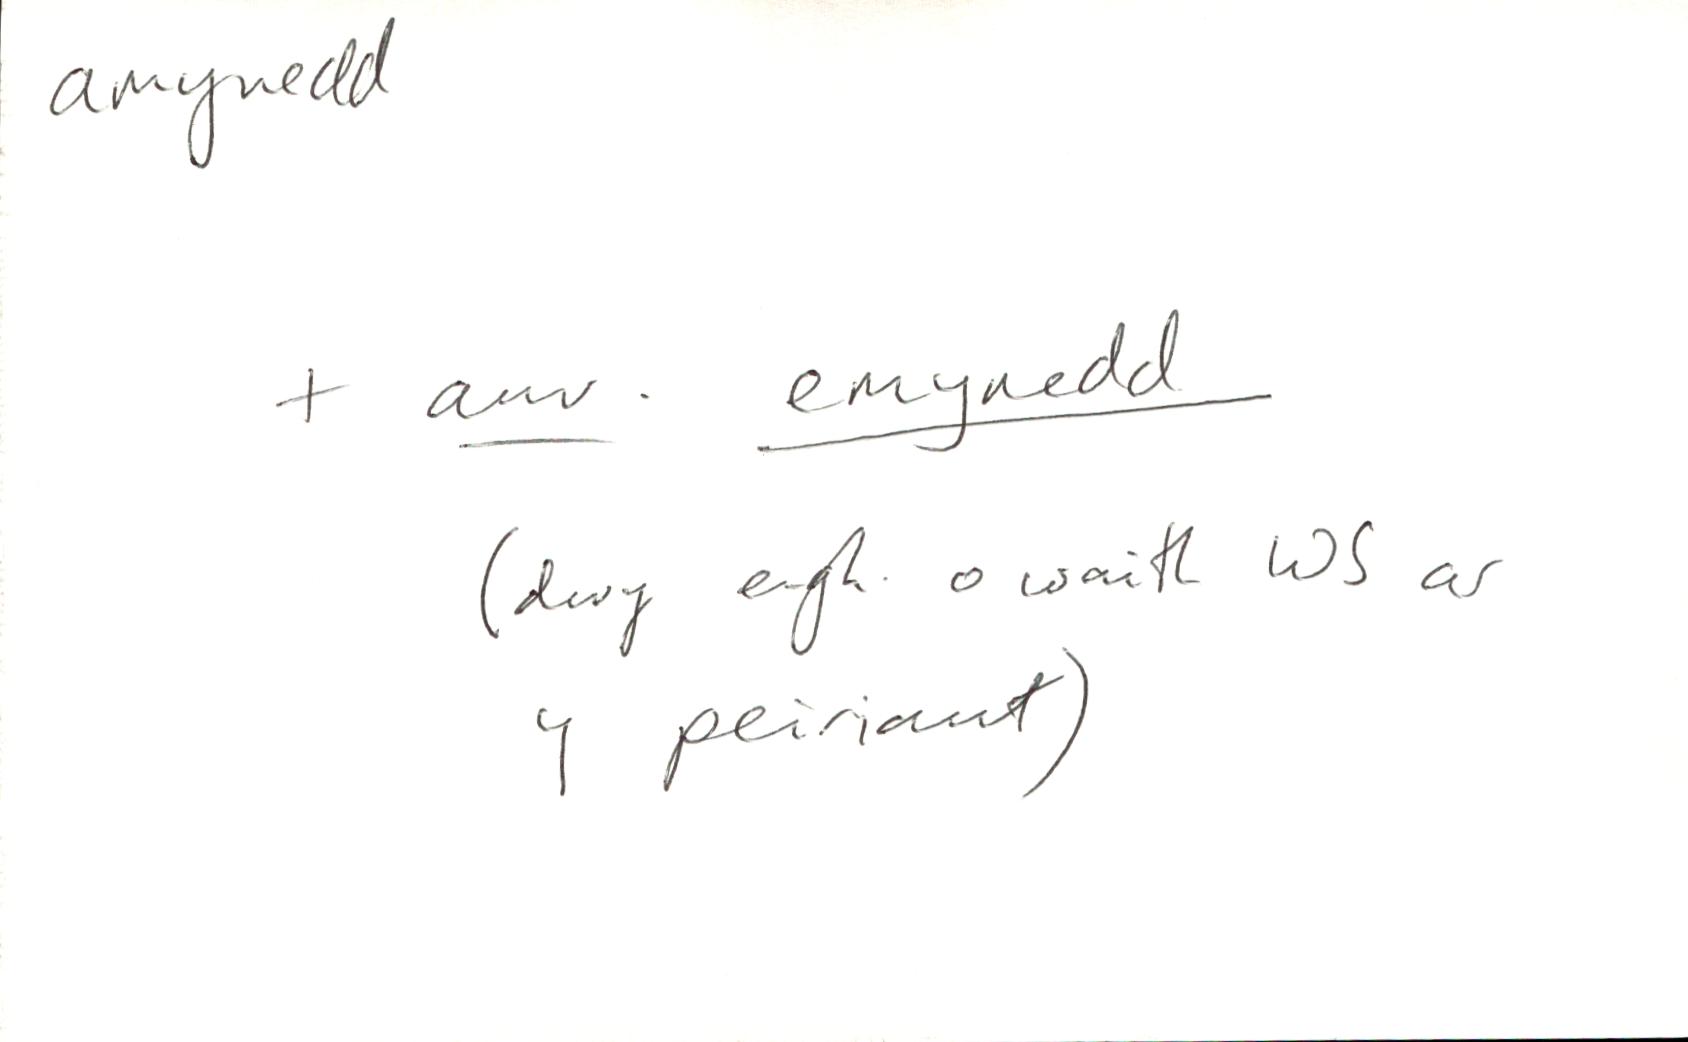 amynedd
+ amr. emynedd
(dwy engh. o waith WS ar
y peiriant)